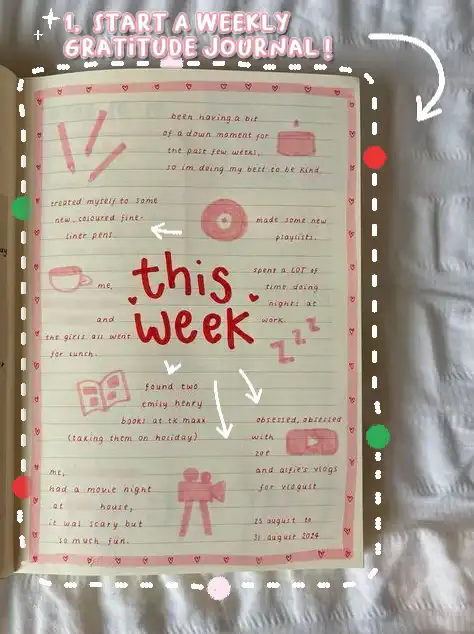 1. START A WEEKLY
GRATITUDE JOURNAL!
been having a bit
of a down moment for
the past few weeks,
so im doing my best to be kind.
treated myself to some
new, coloured fine-
liner pens.
made some new
playlists.
this
week
me,
and
the girls all went
for lunch.
spent a LOT of
time doing
nights at
work.
z z z
found two
emily henry
books at tk maxx
(taking them on holiday)
obsessed, obsessed
with
zoe
and alfie's vlogs
for vlogust
me,
had a movie night
at house,
it was scary but
so much fun.
25 august to
31 august 2024